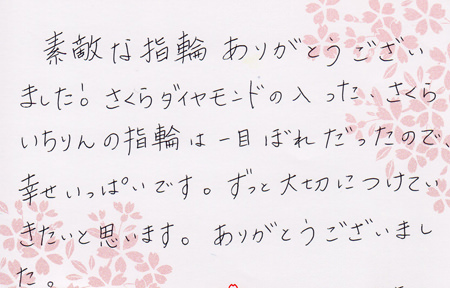 素敵な指輪ありがとうござい
ました！さくらダイヤモンドの入った、さくら
いちりんの指輪は一目ぼれだったので、
幸せいっぱいです。ずっと大切につけてい
きたいと思います。ありがとうございまし
た。